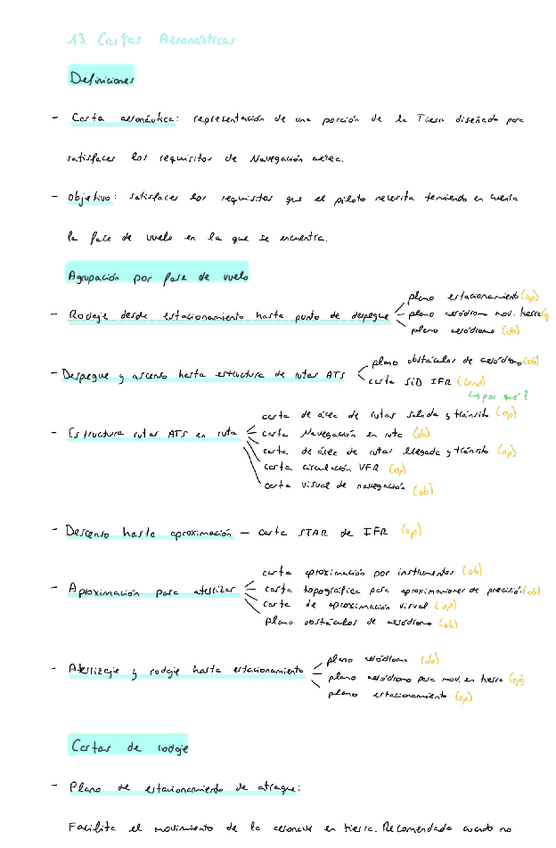 13. Cartas Aeronáuticas
Definiciones
- Carta aeronáutica: representación de una porción de la Tierra diseñada para
satisfacer los requisitos de Navegación aérea.
- Objetivo: satisfacer los requisitos que el piloto necesita teniendo en cuenta
la fase de vuelo en la que se encuentra.
Agrupación por fase de vuelo
- Rodaje desde estacionamiento hasta punto de despegue
plano estacionamiento (op)
plano aeródromo mov. tierra (op
plano aeródromo (ob)
- Despegue y ascenso hasta estructura de rutas ATS
plano obstáculos de aeródromo (ob)
carta SID IFR (cond)
↳ por qué?
- Estructura rutas ATS en ruta
carta de área de rutas salida y tránsito (op)
carta Navegación en ruta (ob)
carta de área de rutas llegada y tránsito (op)
carta circulación VFR (op)
carta visual de navegación (ob)
- Descenso hasta aproximación - carta STAR de IFR (op)
- Aproximación para aterrizar
carta aproximación por instrumentos (ob)
carta topográfica para aproximaciones de precisión (ob)
carta de aproximación visual (op)
plano obstáculos de aeródromo (ob)
- Aterrizaje y rodaje hasta estacionamiento
plano aeródromo (ob)
plano aeródromo para mov. en tierra (op)
plano estacionamiento (op)
Cartas de rodaje
- Plano de estacionamiento de atraque:
Facilita el movimiento de la aeronave en tierra. Recomendada cuando no